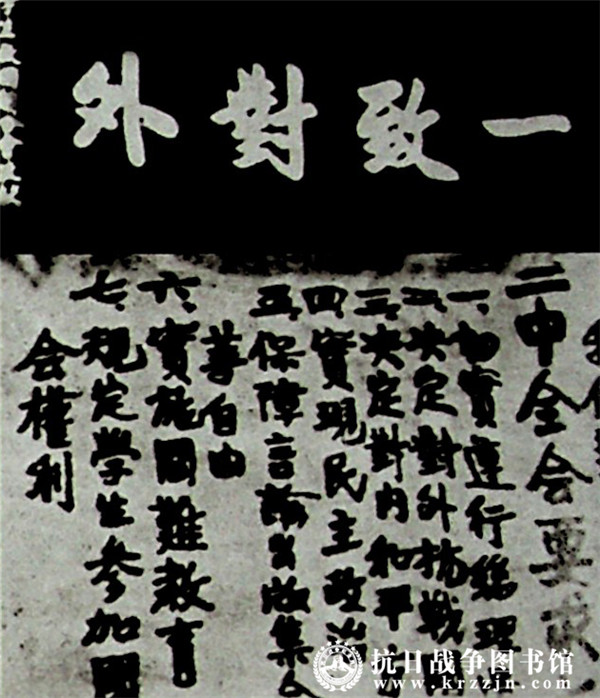 一致對外
二中全会要求
一、切實遵行總理
二、決定對外抗戰
三、決定對内和平
四、實現民主政治
五、保障言論出版集会
等自由
六、實施国難教育
七、規定學生参加國
会權利
抗日战争图书馆
www.krzzjn.com